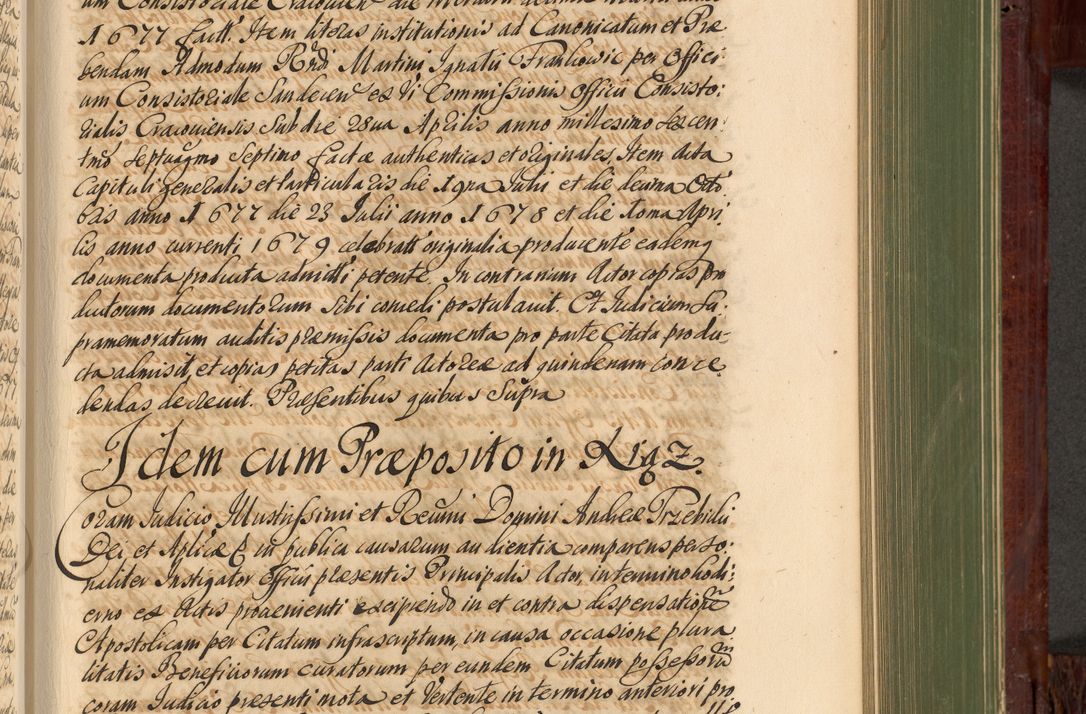 um Consistoriale Cracovien die
1677 factt. Item literas institutionis ad Canonicatum et Præ
bendam Admodum Rndi Martini Ignatii Frankowic per Offici
um Consistoriale Sandecen ex vi Commissionis Officii Consisto:
rialis Cracoviensis sub die 28va Aprilis anno millesimo sexcen
tmo septuagmo septimo factæ authenticas et originales, Item acta
Capituli generalis et particularis die 19na Julii et die decima Octo
bris anno 1677 die 23 Julii anno 1678 et die Apri
lis anno currenti 1679 celebratt originalia producente eademq
documenta producta admitti petente. In contrarium Actor copias pro
ductorum documentorum sibi concedi postulavit. Et Judicium su
pramemoratum auditis præmissis documenta pro parte Citata produ
cta admisit, et copias petitas parti Actoreæ ad quindenam conce
dendas decrevit. Præsentibus quibus supra
Idem cum Præposito in Xiąz.
Coram Judicio Illustrissimi et Reverendissimi Domini Andreæ Trzebicki
Dei et Aplicæ G in publica causarum audientia comparens perso:
naliter Instigator Officii præsentis Principalis Actor, in termino hodi:
erno ex Actis provenienti excipiendo in et contra dispensatione
Apostolicam per Citatum infrascriptum, in causa occasione plura
litatis Beneficiorum curatorum per eundem Citatum possessorum
coram Judicio presenti mota et vertente in termino anteriori pro